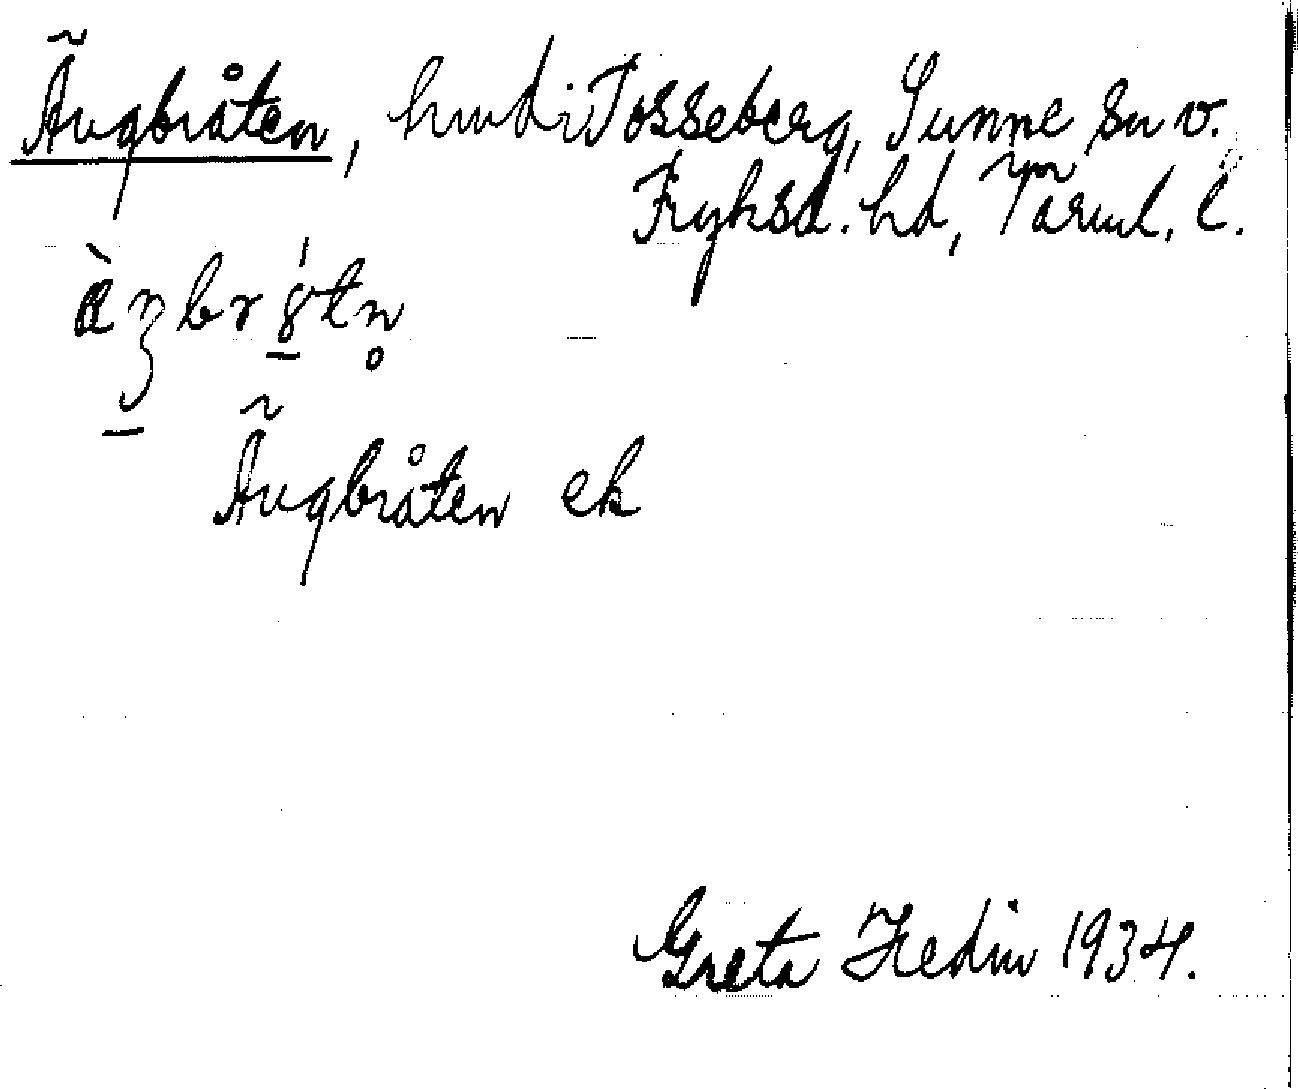 Ängbråten, hmd i Tosseberg, Sunne sn v.
Fryksd. hd, Värml. l.
Ängbråten ek
Greta Hedin 1934.